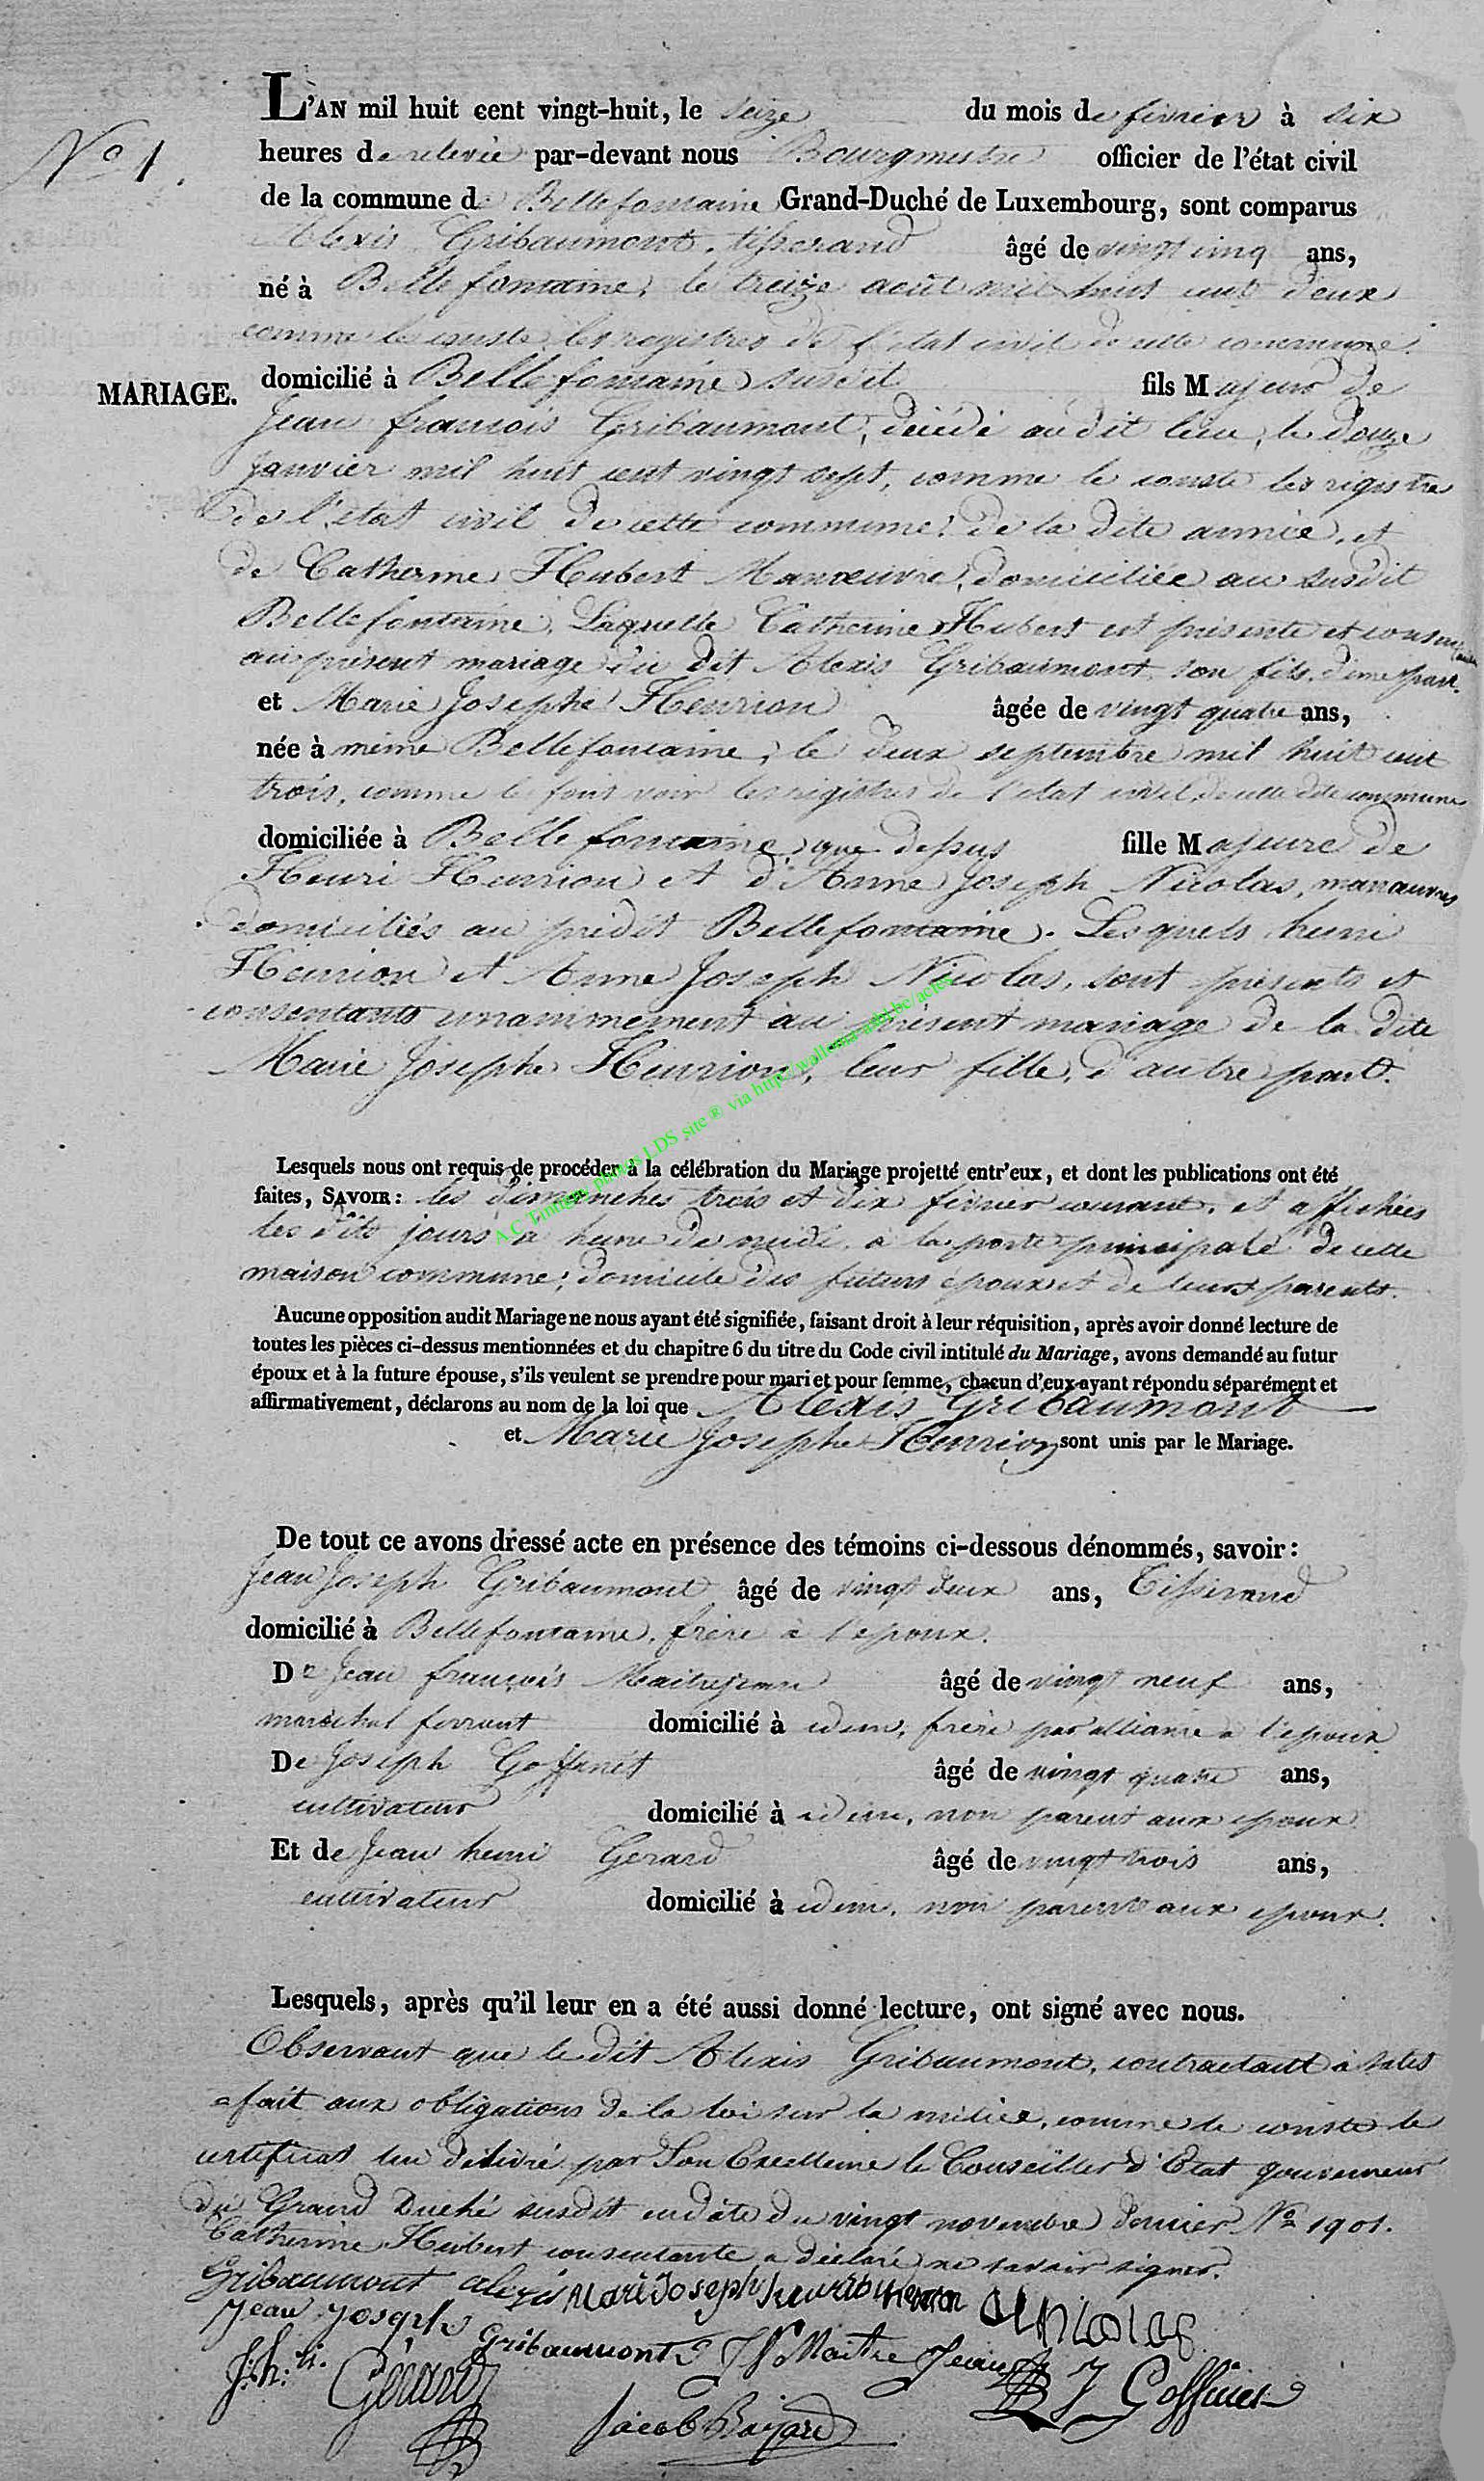 L'AN mil huit cent vingt-huit, le seize du mois de fevrier à six
N° 1.
heures de relevée par-devant nous Bourgmestre officier de l'état civil
de la commune de Bellefontaine Grand-Duché de Luxembourg, sont comparus
Alexis Gribaumont, tisserand âgé de vingt cinq ans,
né à Bellefontaine, le treize août mil huit cent deux
comme le conste les registres de l'état civil de cette commune.
MARIAGE.
domicilié à Bellefontaine susdit fils Majeur de
Jean françois Gribaumont, décédé audit lieu, le douze
janvier mil huit cent vingt sept, comme le conste les régistres
de l'état civil de cette commune, de la dite année, et
de Catherine Hubert Manoeuvre, domiciliée au susdit
Bellefontaine, Laquelle Catherine Hubert est présente et consentante
au présent mariage du dit Alexis Gribaumont son fils, d'une part.
et Marie Josephe Henrion âgée de vingt quatre ans,
née à même Bellefontaine, le deux septembre mil huit cent
trois, comme le font voir les régistres de l'état civil de cette dite commune
domiciliée à Bellefontaine que dessus fille Majeure de
Henri Henrion et d'Anne Joseph Nicolas, manoeuvres
domiciliés au prédit Bellefontaine. Lesquels henri
Henrion et Anne Joseph Nicolas, sont présents et
consentants unanimement au présent mariage de la dite
Marie Josephe Henrion, leur fille, d'autre part.
A.C Tintigny photos LDS site ® via http://wallonia-asbl.be/actes
Lesquels nous ont requis de procéder à la célébration du Mariage projetté entr'eux, et dont les publications ont été
faites, SAVOIR: les dimanches trois et dix février courant, et affichées
les dits jours à heure de midi, à la porte principale de cette
maison commune; domicile des futurs époux et de leurs parents.
Aucune opposition audit Mariage ne nous ayant été signifiée, faisant droit à leur réquisition, après avoir donné lecture de
toutes les pièces ci-dessus mentionnées et du chapitre 6 du titre du Code civil intitulé du Mariage, avons demandé au futur
époux et à la future épouse, s'ils veulent se prendre pour mari et pour femme, chacun d'eux ayant répondu séparément et
affirmativement, déclarons au nom de la loi que Alexis Gribaumont
et Marie Josephe Henrion sont unis par le Mariage.
De tout ce avons dressé acte en présence des témoins ci-dessous dénommés, savoir:
Jean Joseph Gribaumont âgé de vingt deux ans, Tisserand
domicilié à Bellefontaine, frère à l'epoux.
De Jean françois Maitrejean âgé de vingt neuf ans,
maréchal ferrant domicilié à idem, frère par alliance à l'epoux
De Joseph Goffinet âgé de vingt quatre ans,
cultivateur domicilié à idem, non parent aux epoux
Et de Jean henri Gerard âgé de vingt trois ans,
cultivateur domicilié à idem, non parent aux epoux.
Lesquels, après qu'il leur en a été aussi donné lecture, ont signé avec nous.
Observant que le dit Alexis Gribaumont, contractant à satis
=fait aux obligations de la loi sur la milice, comme le conste le
certificat lui délivré par Son Excellence le Conseiller d'Etat gouverneur
du Grand Duché susdit en date du vingt novembre dernier N° 1901.
Catherine Hubert consentante a déclaré ne savoir signer.
Gribaumont alexis Mari Joseph henrion Henrion Nicolas
Jean Josephe Gribaumont J F Maitre Jean
J: h: ri. Gérard J Goffinet
Jacob Bajard